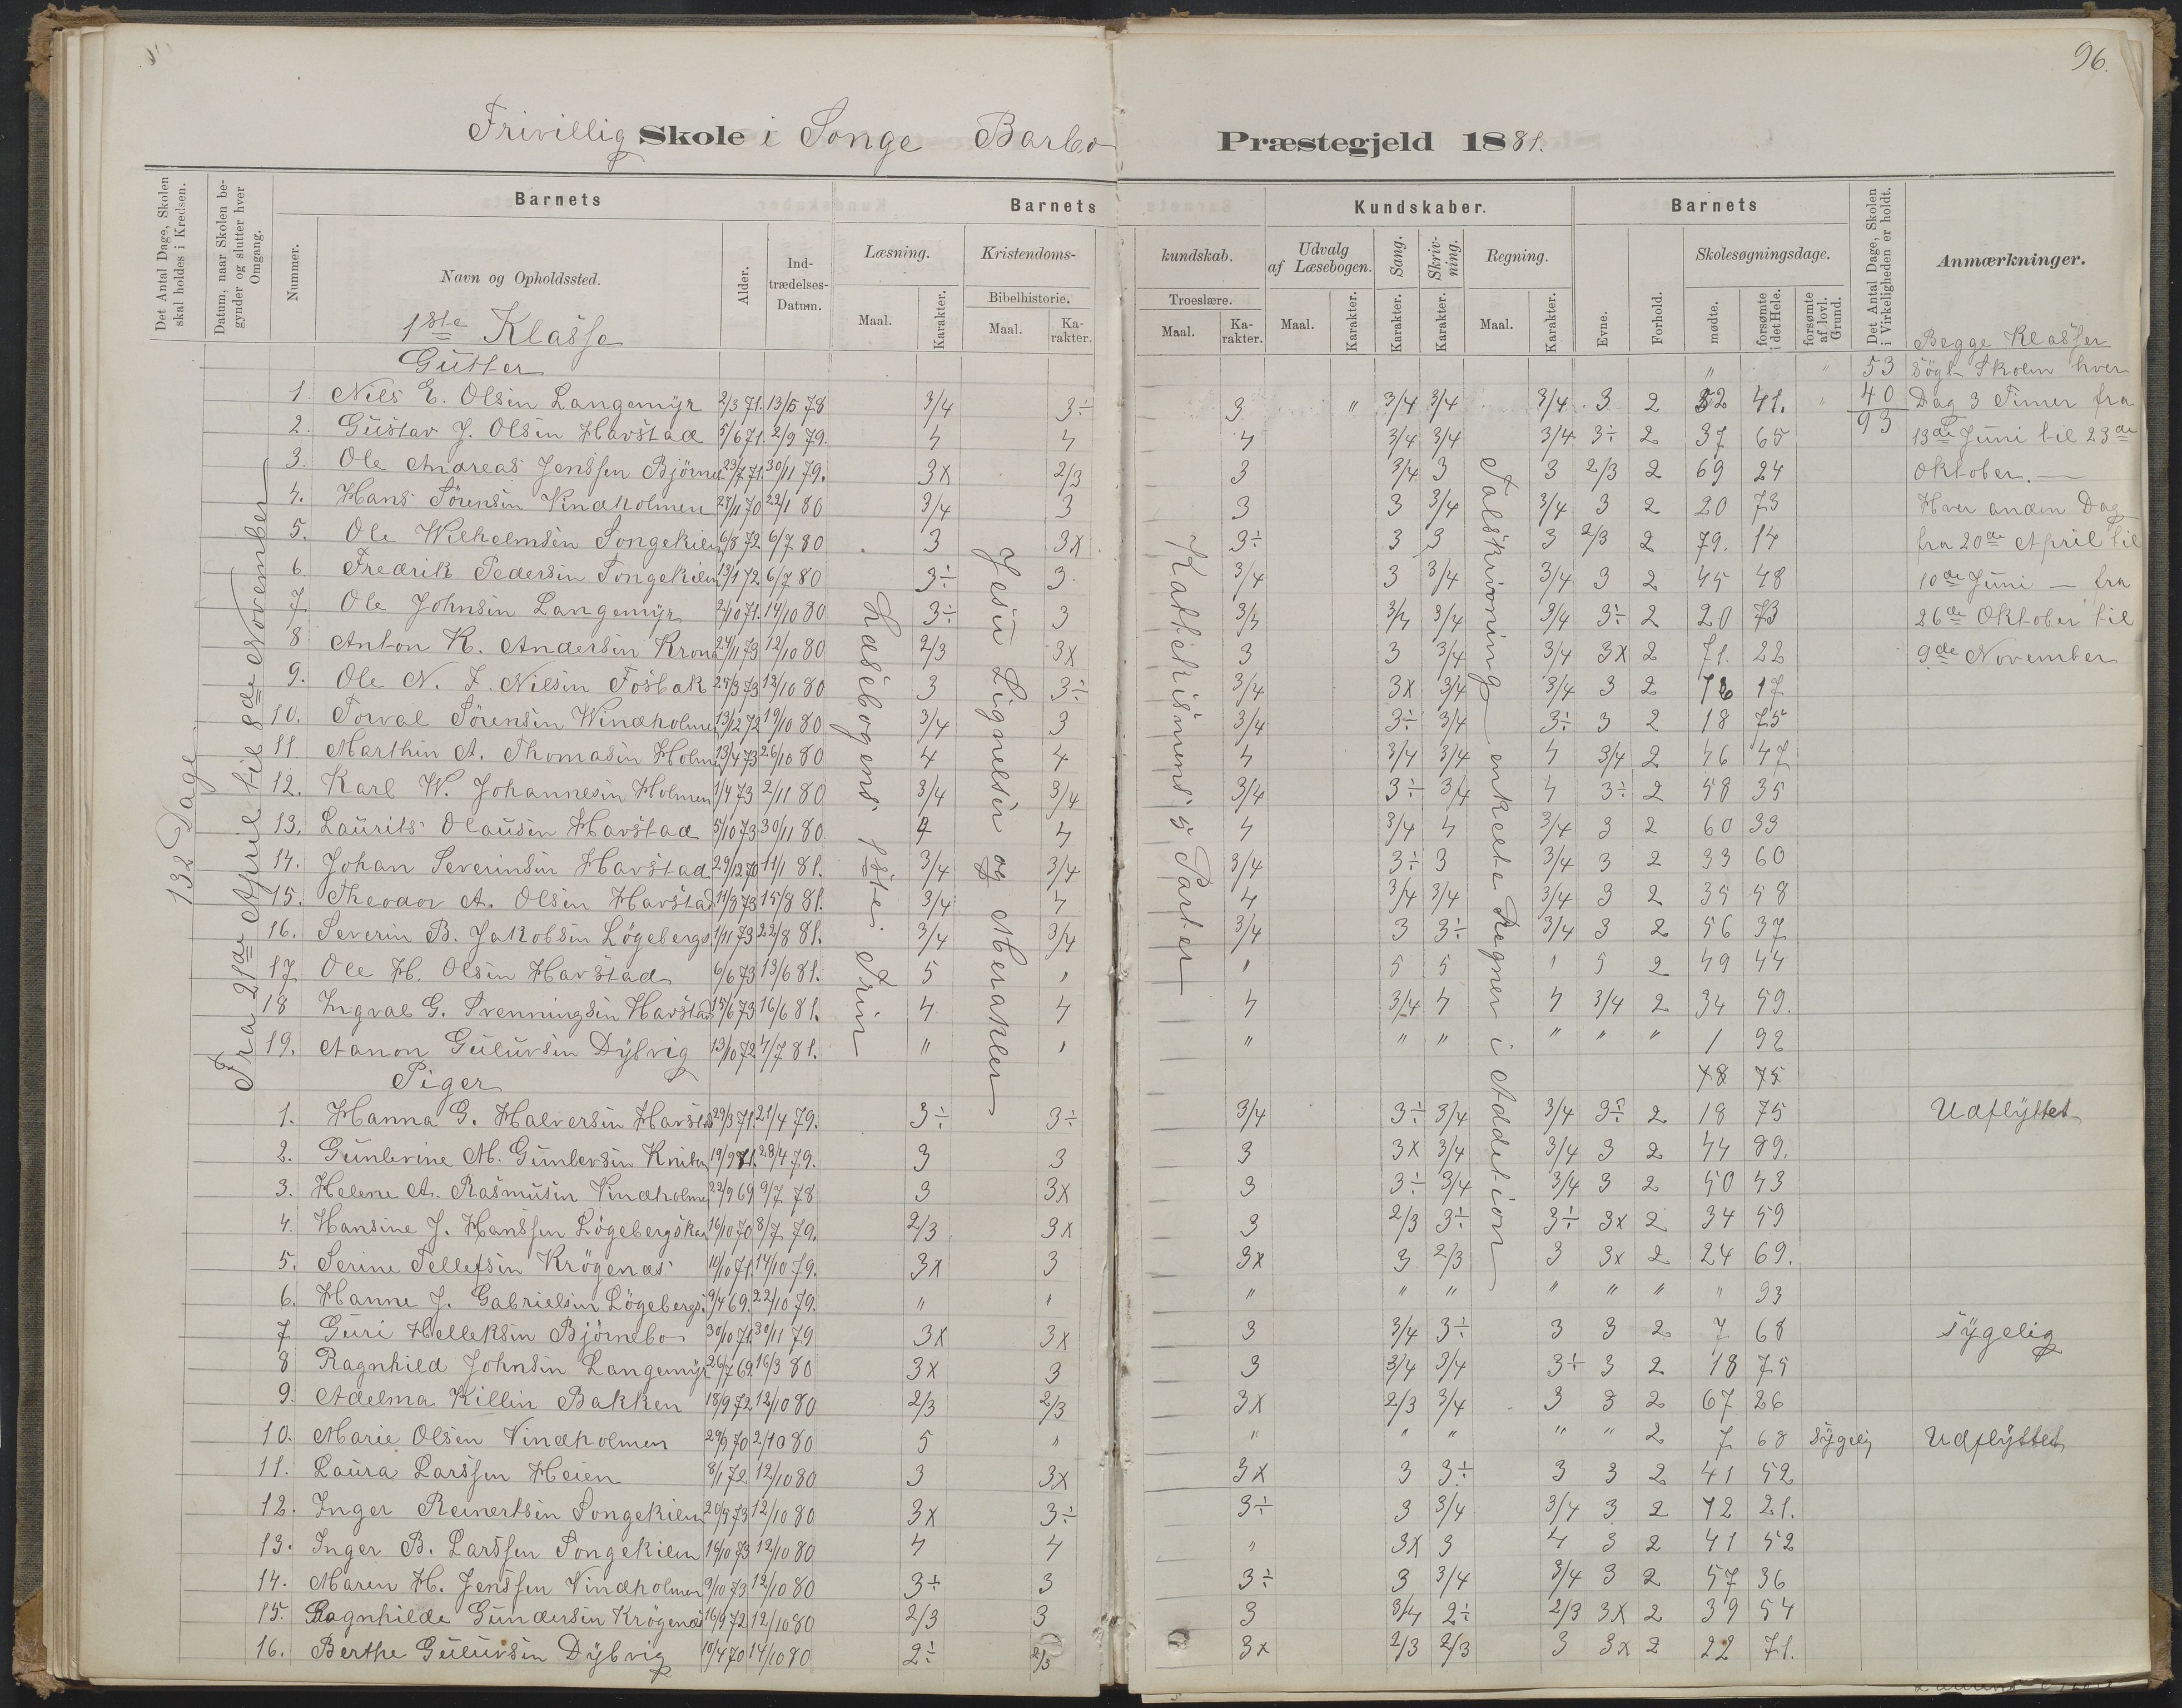 96.
Frivillig Skole i Songe Barbo Præstegjeld 1881.
Det Antal Dage, Skolen skal holdes i Kredsen.
Datum, naar Skolen begynder og slutter hver Omgang.
Barnets
Nummer.
Navn og Opholdssted.
Alder.
Indtrædelses-Datum.
Barnets
Læsning.
Maal.
Karakter.
Kristendoms-
Bibelhistorie.
Maal.
Karakter.
kundskab.
Troeslære.
Maal.
Karakter.
Kundskaber.
Udvalg af Læsebogen.
Maal.
Karakter.
Sang.
Karakter.
Skrivning.
Karakter.
Regning.
Maal.
Karakter.
Barnets
Evne.
Forhold.
Skolesøgningsdage.
mødte.
forsømte i det Hele.
forsømte af lovl. Grund.
Det Antal Dage, Skolen i Virkeligheden er holdt.
Anmærkninger.
132 Dage
Fra 21de April til 8de November
Læsebogens 1ste Trin
Jesu Lignelser og Merakler
Kattekismens 5 Parter
Talskrivning enkelte Regner i Addetion
1ste Klasse
Gutter
53
40
93
Begge Klasser
søgt Skolen hver
Dag 3 Timer fra
13de Juni til 23de
Oktober. —
Hver anden Dag
fra 20de April til
10de Juni — fra
26de Oktober til
9de November
1 Nils E. Olsen Langemyr 2/3 71. 13/5 78 3/4 3÷ 3 " 3/4 3/4 3/4 3 2 52 41.
2. Gustav J. Olsen Havstad 5/6 71. 2/9 79. 4 4 4 3/4 3/4 3/4 3÷ 2 37 65
3. Ole Andreas Jenssen 23/7 71. 30/11 79. 3x 2/3 3 3/4 3 3 2/3 2 69 24
4. Hans Sørensen Vindholmen 22/1 80 3/4 3 3 3 3/4 3/4 3 2 20 73
5. Ole Wilhelmsen Songekilen 6/8 72 6/7 80 3 3x 3÷ 3 3 3 2/3 2 79. 14
6 Fredrik Pedersen Songekilen 13/1 72 6/7 80 3÷ 3 3/4 3 3/4 3/4 3 2 45 48
7. Ole Johnsen Langemyr 2/10 71. 14/10 80 3÷ 3 3/4 3/4 3/4 3/4 3÷ 2 20 73
8 Anton K. Andersen 12/10 80 2/3 3x 3 3 3/4 3/4 3x 2 71. 22
9. Ole N. J. Nilsen Fosbak 25/3 73 12/10 80 3 3÷ 3/4 3x 3/4 3/4 3 2 76 17
10. Torval Sørensen Windholmen 13/12 72 19/10 80 3/4 3 3/4 3÷ 3/4 3÷ 3 2 18 75
11. Marthin A. Thomasen Holmen 13/4 73 26/10 80 4 4 4 3/4 3/4 4 3/4 2 46 47
12. Karl W. Johannesen Holmen 1/4 73 2/11 80 3/4 3/4 3/4 3÷ 3/4 4 3÷ 2 58 35
13. Laurits Olausen Havstad 5/10 73 30/11 80 4 4 4 3/4 4 3/4 3 2 60 33
14. Johan Severinsen Havstad 29/12 70 11/1 81. 3/4 3/4 3/4 3÷ 3 3/4 3 2 33 60
15. Theodor A. Olsen Havstad 11/9 73 15/8 81. 3/4 4 4 3/4 3/4 3/4 3 2 35 58
16. Severin B. Jakobsen Løgebergs. 1/11 73 22/8 81. 3/4 3/4 3/4 3 3÷ 3/4 3 2 56 37
17 Ole H. Olsen Havstad 6/6 73 13/6 81. 5 " " 5 5 " 5 2 49 44
18 Ingval G. Svenningsen Havstad 15/6 73 16/6 81. 4 4 4 3/4 4 4 3/4 2 34 59.
19. Aanon Guluvsen Dybvig 13/10 72 4/7 81. " " " " " " " " 1 92
Piger 18 75
1. Hanna G. Halversen Havstad 29/3 71. 21/4 79. 3÷ 3÷ 3/4 3÷ 3/4 3/4 3÷ 2 18 75 Udflyttet
2. Gunberine M. Gunbersen 19/9 71. 28/4 79. 3 3 3 3x 3/4 3/4 3 2 44 89.
3. Helene A. Rasmusen Vindholmen 22/9 69 9/7 78 3 3x 3 3÷ 3/4 3/4 3 2 50 43
4. Hansine J. Hanssen Løgebergskar 16/10 70 8/7 79. 2/3 3x 3 2/3 3÷ 3÷ 3x 2 34 59
5. Serine Tellefsen Krøgenæs 14/10 79. 3x 3 3x 3 2/3 3 3x 2 24 69.
6. Hanne J. Gabrielsen Løgebergs. 9/4 69. 22/10 79. " " " " " " " " " 93
7 Guri Helleksen Bjørnebo 30/10 71. 30/11 79 3x 3x 3 3/4 3÷ 3 3 2 7 68 sygelig
8 Ragnhild Johnsen Langemyr 26/7 69. 16/3 80 3x 3 3 3/4 3/4 3÷ 3 2 18 75
9. Adelma Killin Bakken 18/9 72. 12/10 80 2/3 2/3 3x 2/3 3/4 3 3 2 67 26
10. Marie Olsen Vindholmen 29/9 70 2/10 80 5 " " " " " " 2 7 68 sygelig Udflyttet
11. Laura Larssen Heien 8/1 72. 12/10 80 3 3x 3x 3 3÷ 3 3 2 41 52
12. Inger Reinertsen Songekilen 20/5 73 12/10 80 3x 3÷ 3÷ 3 3/4 3/4 3 2 72 21.
13. Inger B. Larssen Songekilen 12/10 80 4 4 " 3x 3 4 3 2 41 52
14. Maren H. Jenssen Vindholmen 9/10 73 12/10 80 3÷ 3 3÷ 3 3/4 3/4 3 2 57 36
15. Ragnhilde Gundersen Krøgenæs 16/9 72 12/10 80 2/3 3 3 3/4 2÷ 2/3 3x 2 39 54
16. Berthe Gulüvsen Dybvig 10/4 70 14/10 80 2÷ 2/3 3x 2/3 2/3 3 3x 2 22 71.